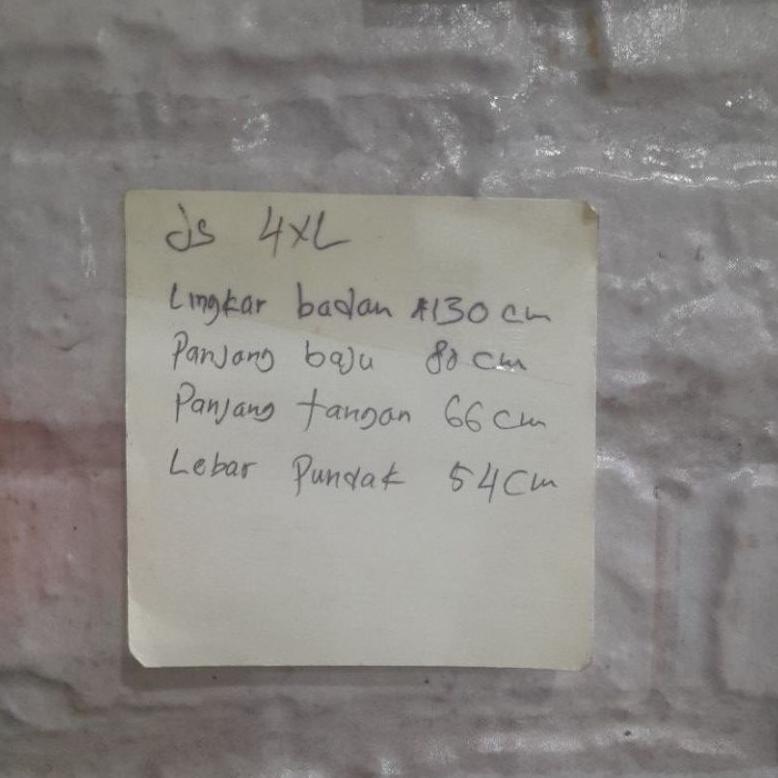 JS 4XL
Lingkar badan 130 cm
Panjang baju 80 cm
Panjang tangan 66 cm
Lebar Pundak 54 cm